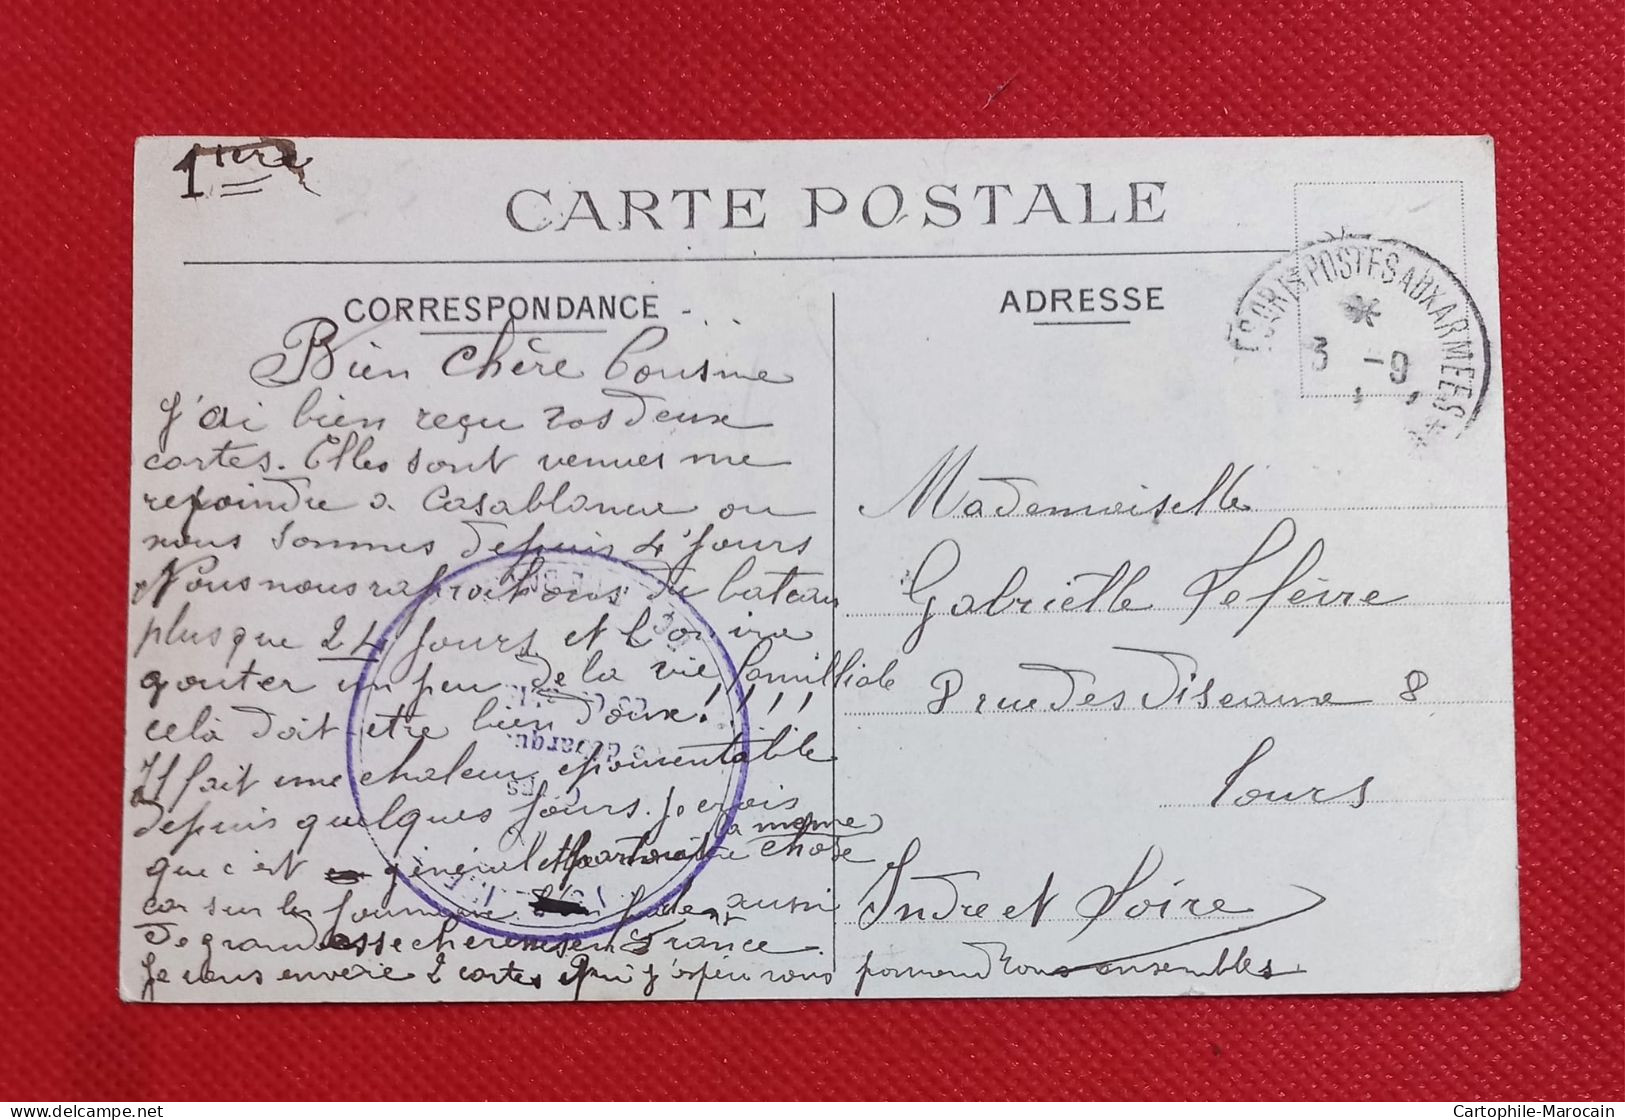 1ière
CARTE POSTALE
CORRESPONDANCE
Bien Chère Cousine
J'ai bien reçu vos deux
cartes. Elles sont venues me
rejoindre a Casablanca ou
nous sommes depuis 4 jours
Nous nous rafroichons du bateau
plus que 24 jours et l'on ira
gouter un peu de la vie familliale
celà doit être bien doux!!!!
Il fait une chaleur épouventable
depuis quelques jours. je crois
que c'est général et partout la même chose
car sur les journeaux parlent aussi
de grande secheresse en France.
Je vous envoie 2 cartes qui j'espère vous parviendrons ensembles
ADRESSE
POSTES AUX ARMEES
*
3 -9
Mademoiselle
Gabrielle Lefèvre
8 rue des Oiseaux 8
Tours
Indre et Loire
Cartophile-Marocain